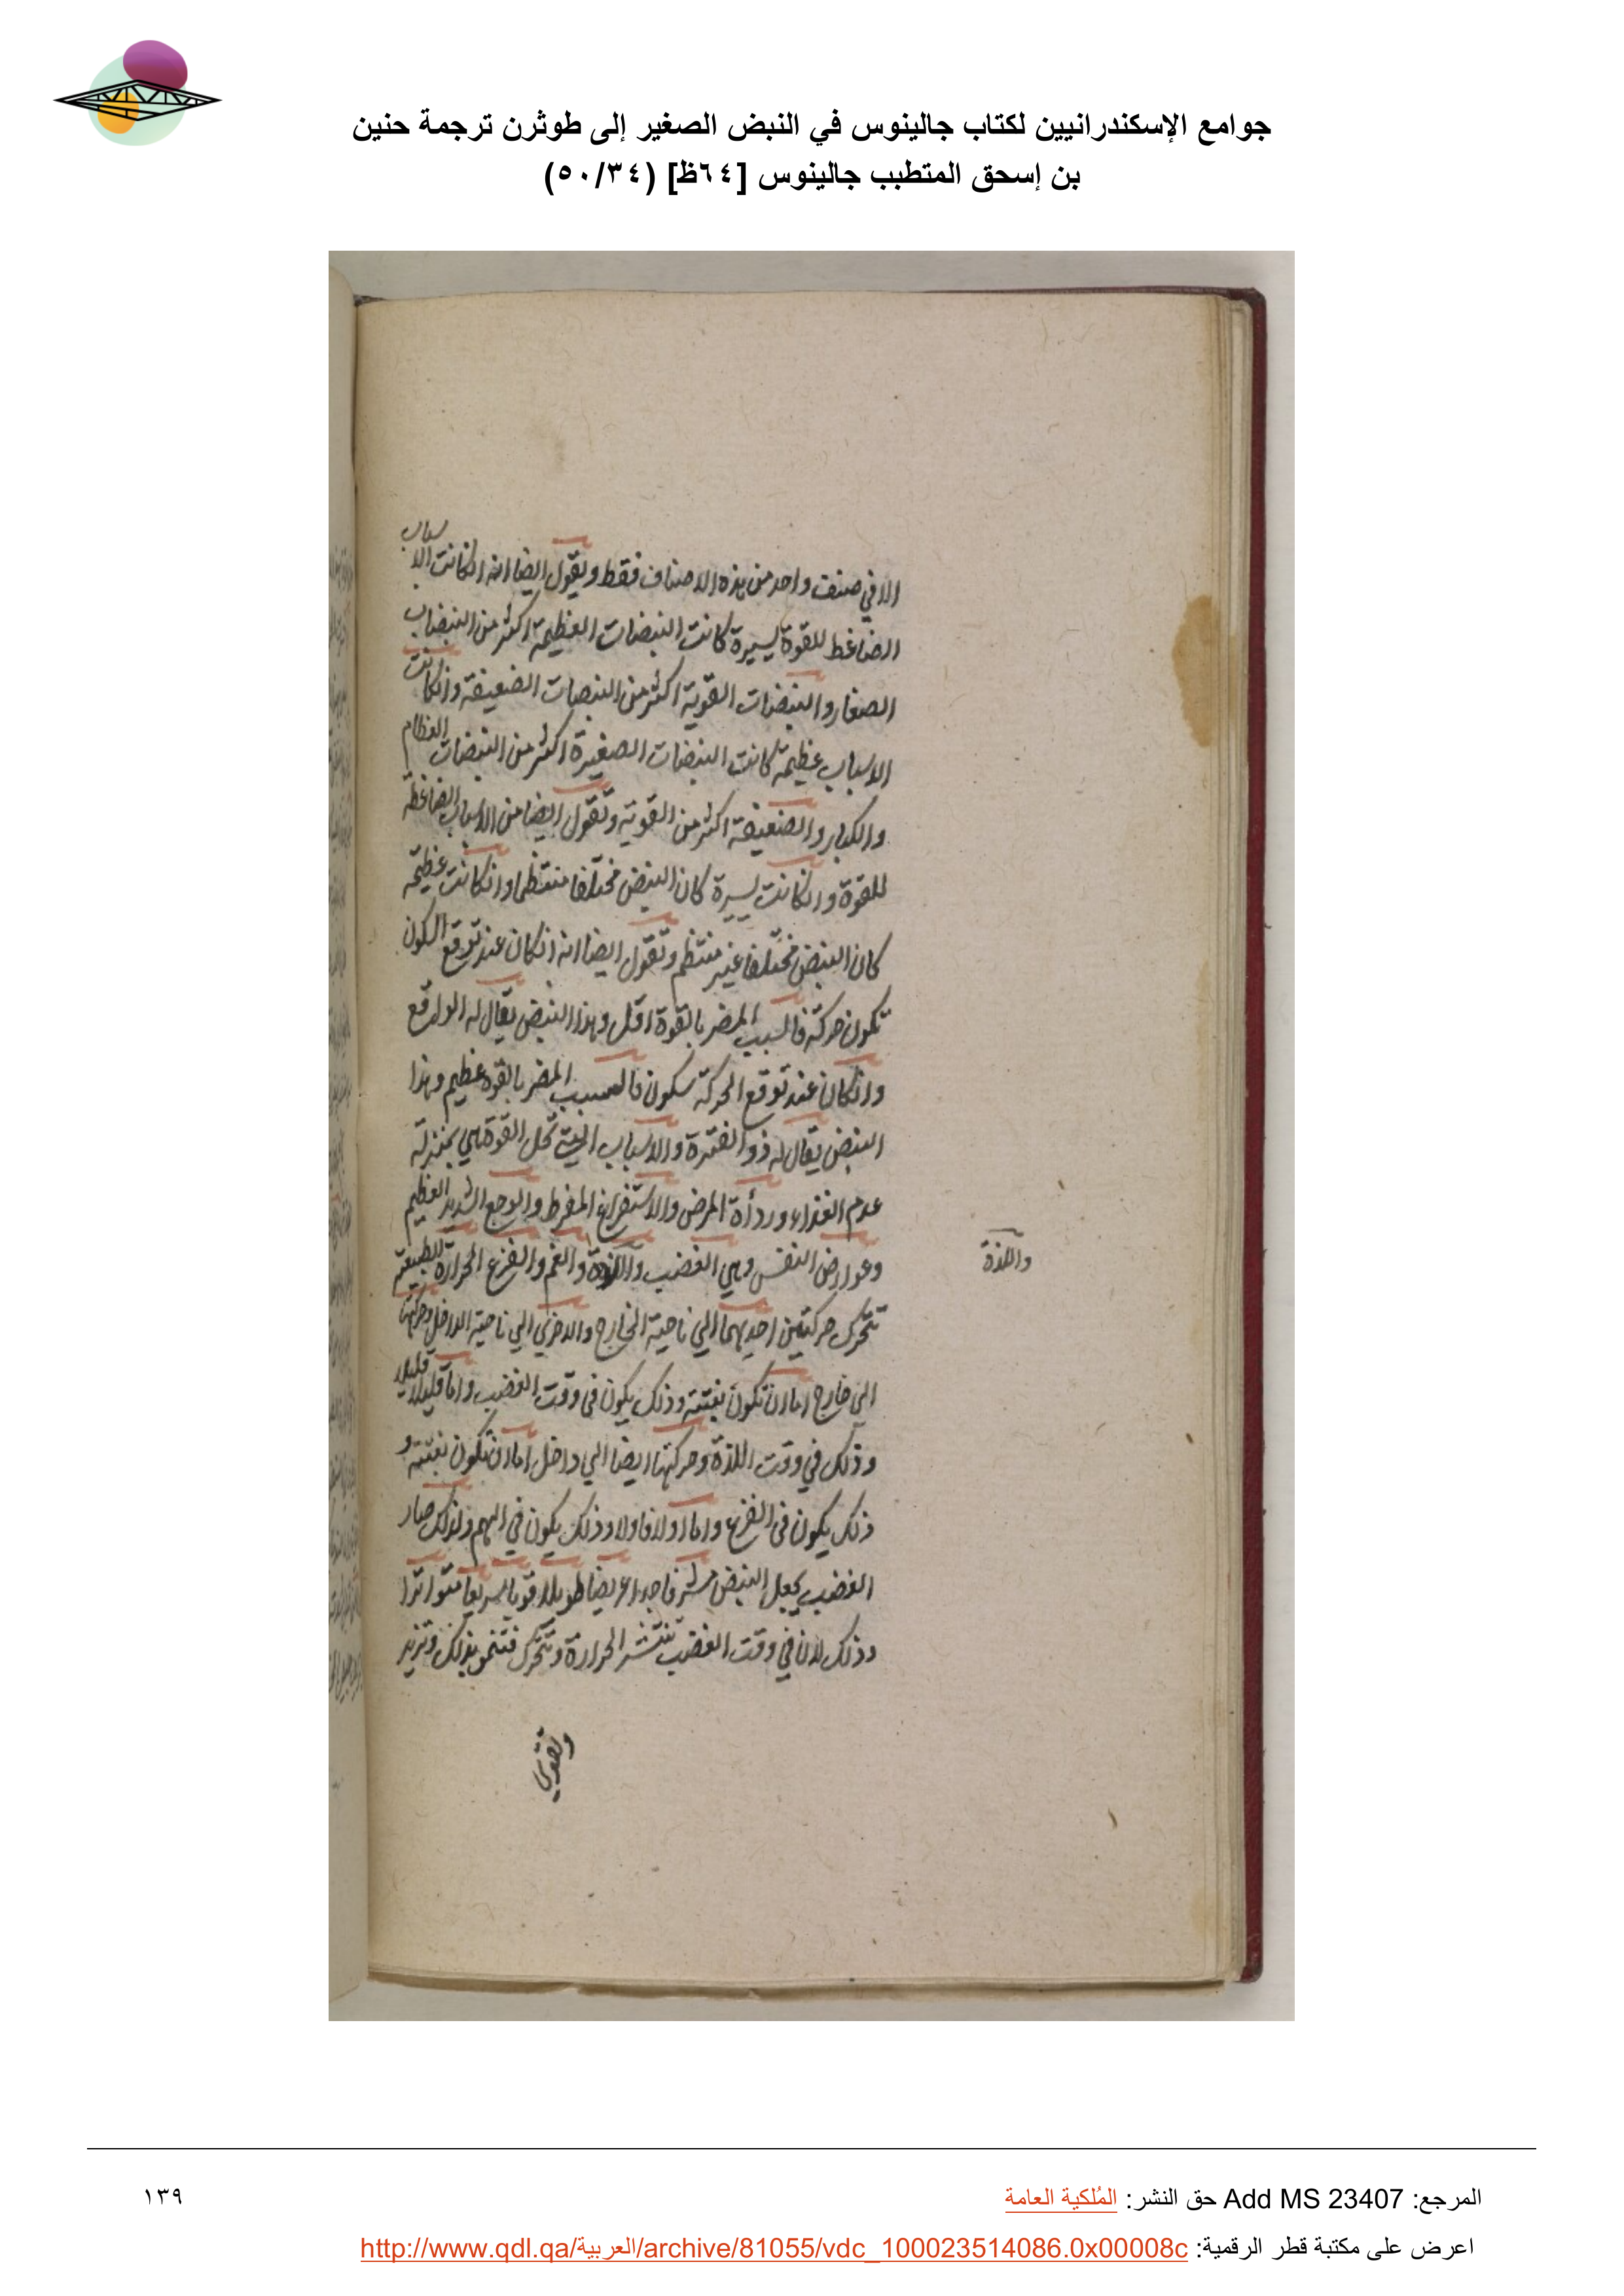 جوامع الإسكندرانيين لكتاب جالينوس في النبض الصغير إلى طوثرن ترجمة حنين
بن إسحق المتطبب جالينوس [٦٤ظ] (٥٠/٣٤)
الا في صنف واحد من هذه الاصناف فقط ويقول ايضا انه ان كانت الاسباب
الضاغط للقوة يسيرة كانت النبضات العظيمة اكثر من النبضات
الصغار والنبضات القوية اكثر من النبضات الضعيفة وان كانت
الاسباب عظيمة كانت النبضات الصغيرة اكثر من النبضات العظام
والكبار والضعيفة اكثر من القوية وتقول ايضا من الاسباب الضاغطة
للقوة وان كانت يسيرة كان النبض مختلفا منتظما وان كانت عظيمة
كان النبض مختلفا غير منتظم وتقول ايضا انه ان كان عند توقع السكون
تكون حركة فالسبب المضر بالقوة اقل وهذا النبض يقال له الواقع
وان كان عند توقع الحركة سكون فالسبب المضر بالقوة عظيم وهذا
النبض يقال له ذو الفترة والاسباب التي تحل القوة هي بمنزلة
عدم الغذاء وردأة المرض والاستفراغ المفرط والوجع الشديد العظيم
وعوارض النفس وهي الغضب واللذة والغم والفزع الحرارة الطبيعية
واللذة
تتحرك حركتين احديهما الي ناحية الخارج والاخري الي ناحية الداخل وحركتها
الي خارج اما ان تكون بغتة وذلك يكون في وقت الغضب واما قليلا قليلا
وذلك في وقت اللذة وحركتها ايضا الي داخل اما ان تكون بغتة و
ذلك يكون في الفزع واما اولا فاولا وذلك يكون في الهم ولذلك صار
الغضب يجعل النبض مشرفا جدا عريضا طويلا قويا سريعا متواترا
وذلك لان في وقت الغضب تنتشر الحرارة وتتحرك فتنمو بذلك وتزيد
وتقوي
المرجع: Add MS 23407 حق النشر: المُلكية العامة
١٣٩
اعرض على مكتبة قطر الرقمية: http://www.qdl.qa/العربية/archive/81055/vdc_100023514086.0x00008c